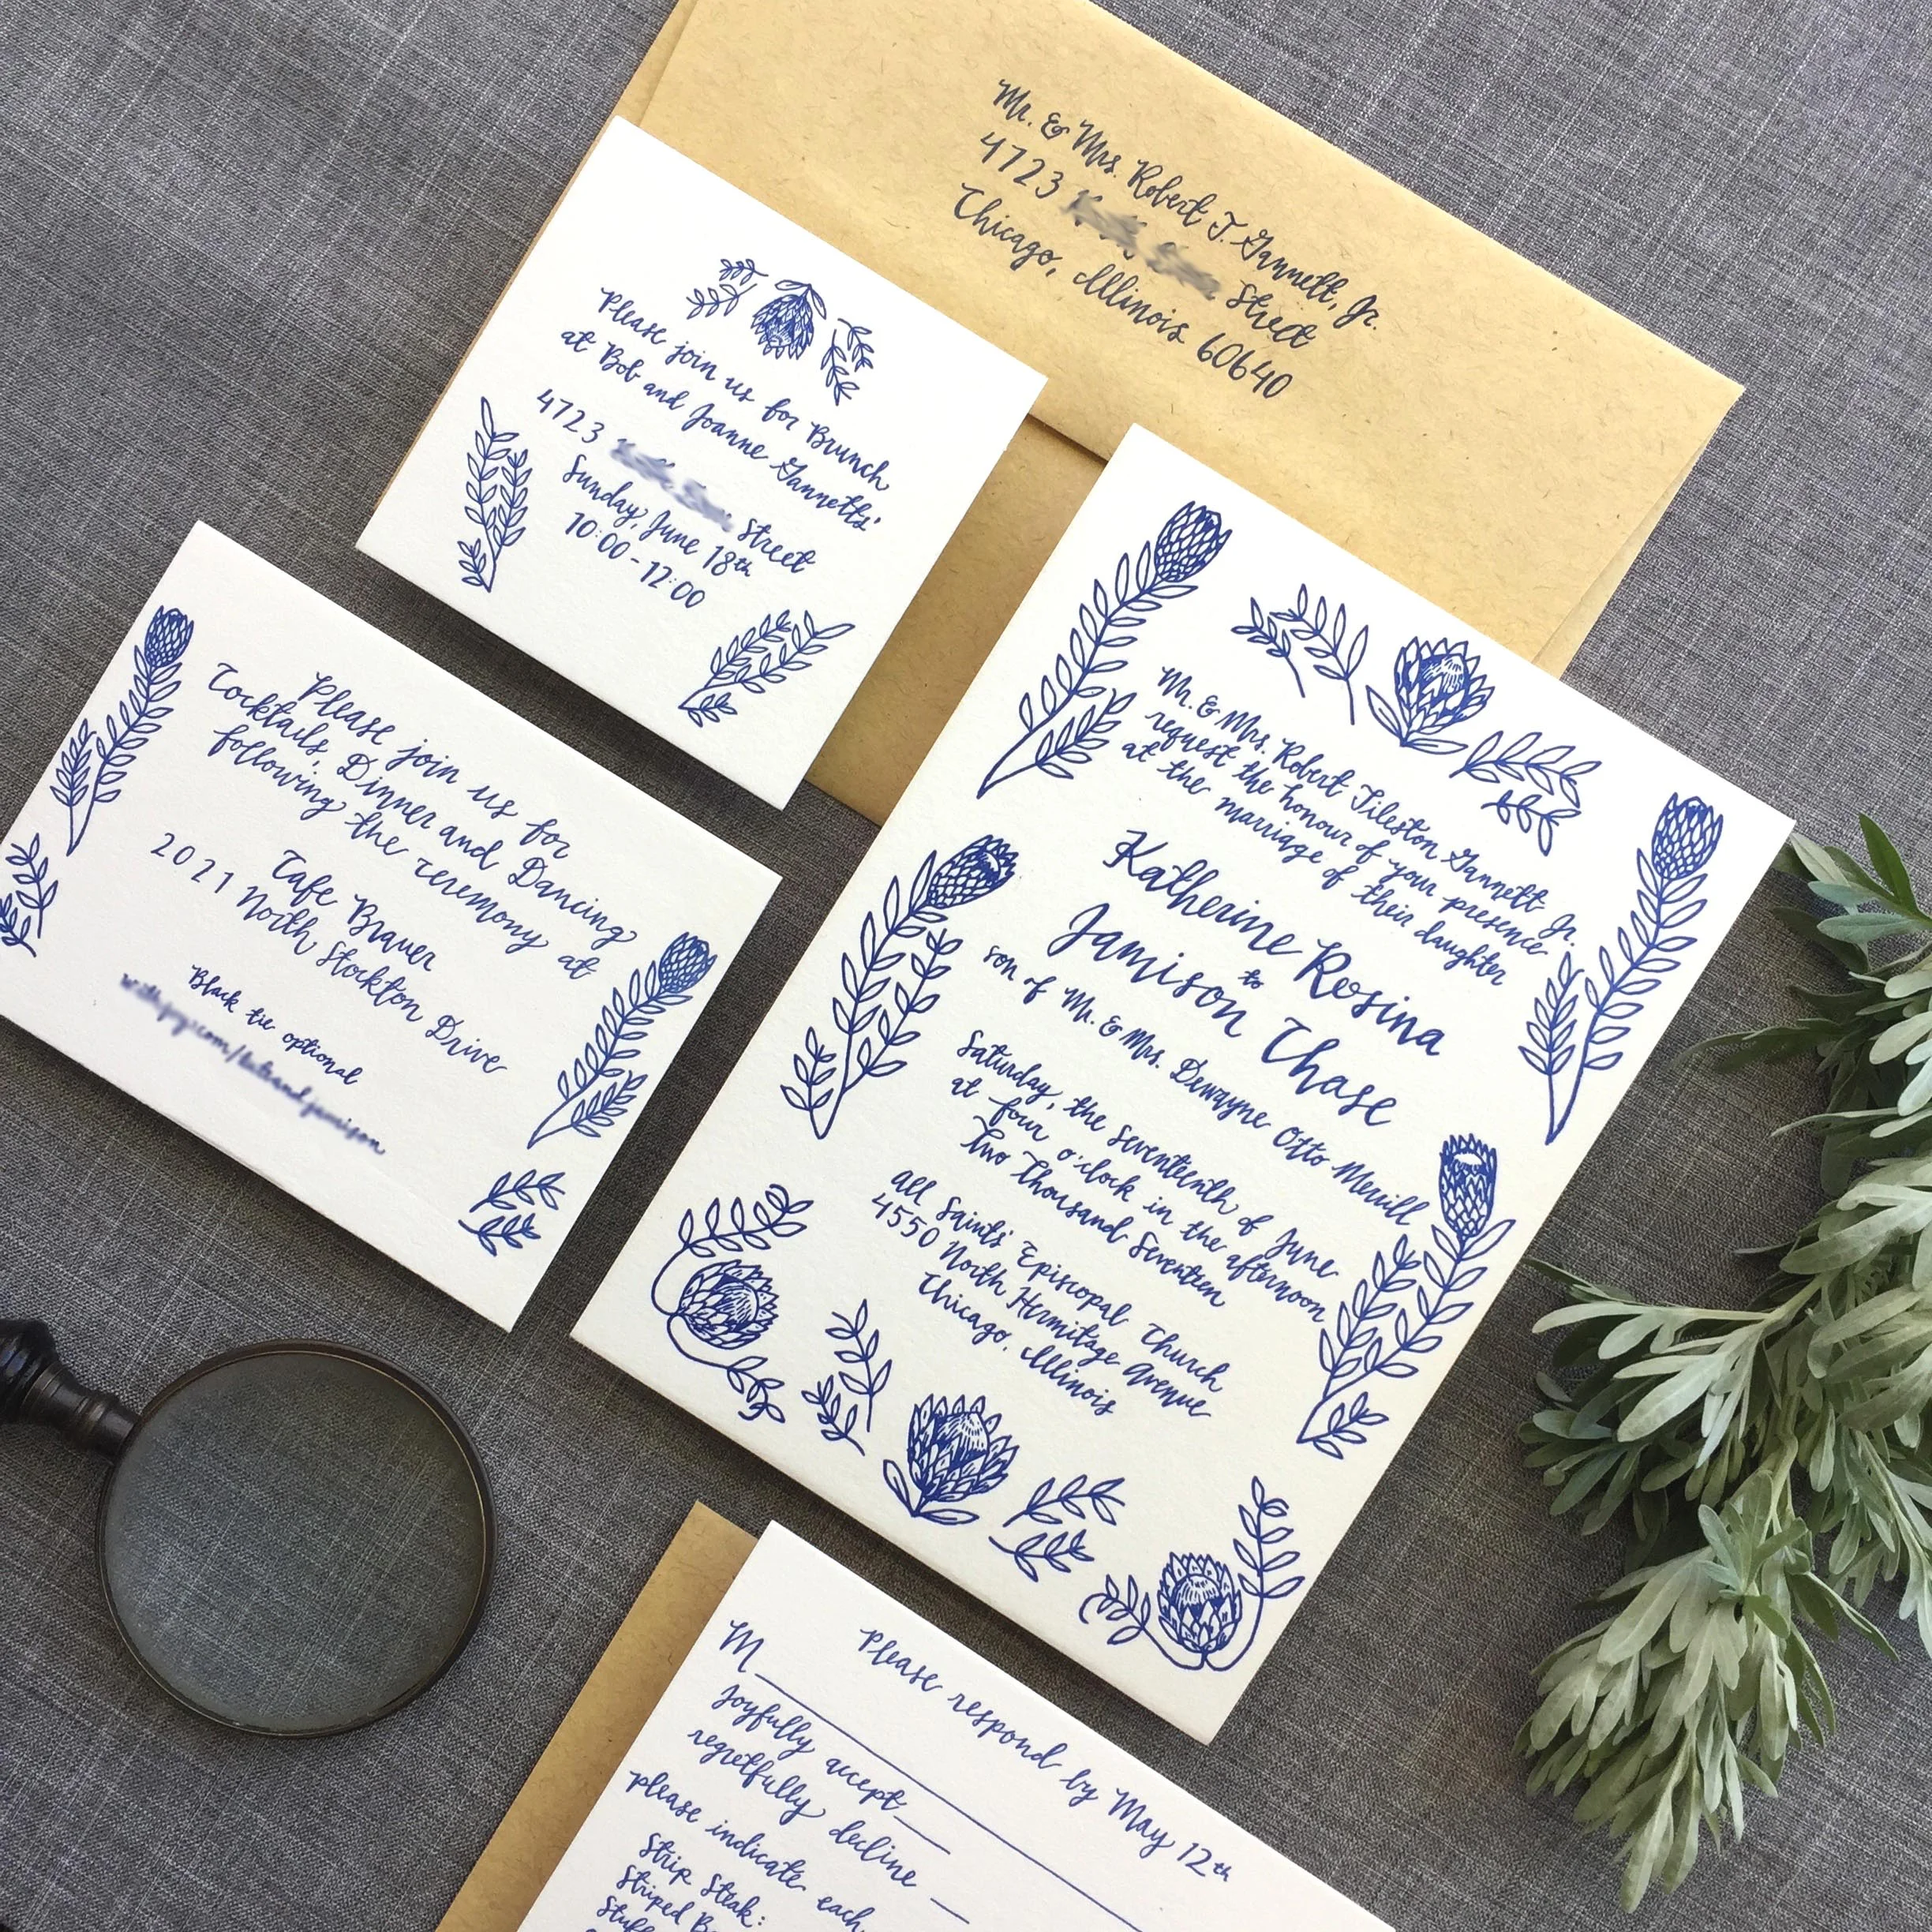 Mr. & Mrs. Robert T. Gannett, Jr.
4723 Street
Chicago, Illinois 60640
Please join us for Brunch
at Bob and Joanne Gannetts'
4723 Street
Sunday, June 18th
10:00-12:00
Please join us for
Cocktails, Dinner and Dancing
following the ceremony at
Cafe Brauer
2021 North Stockton Drive
Black tie optional
Mr. & Mrs. Robert Tileston Gannett Jr.
request the honour of your presence
at the marriage of their daughter
Katherine Rosina
to
Jamison Chase
son of Mr. & Mrs. Dewayne Otto Merrill
Saturday, the seventeenth of June
at four o'clock in the afternoon
Two Thousand Seventeen
All Saints' Episcopal Church
4550 North Hermitage Avenue
Chicago, Illinois
Please respond by May 12th
M
Joyfully accept
regretfully decline
please indicate each
Strip Steak:
Striped